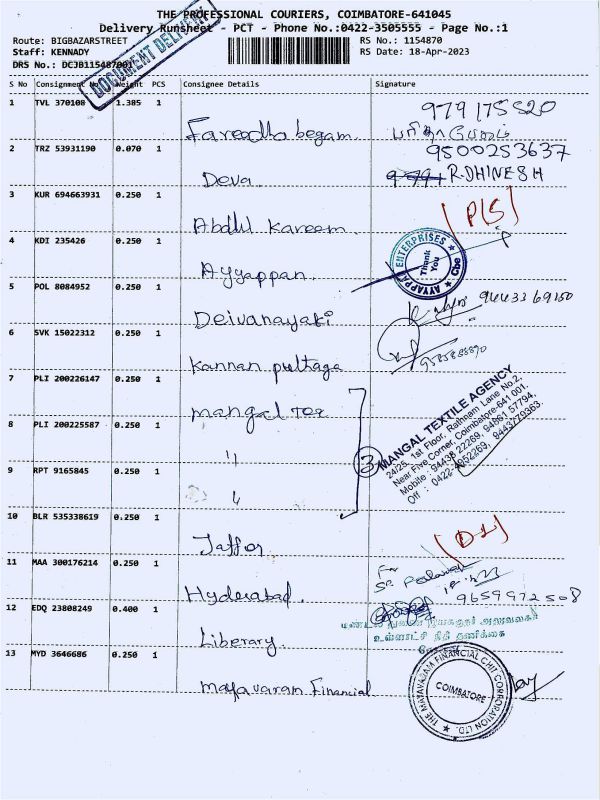 THE PROFESSIONAL COURIERS, COIMBATORE-641045
Delivery Runsheet - PCT - Phone No.:0422-3505555 - Page No.:1
Route: BIGBAZARSTREET RS No.: 1154870
Staff: KENNADY RS Date: 18-Apr-2023
DRS No.: DCJB115487001
DOCUMENT DELIVERY
S No Consignment No Weight PCS Consignee Details Signature
1 TVL 370108 1.385 1 Fareedha begam 979175520
பரிதா பேகம்
2 TRZ 53931190 0.070 1 Deva 9500253637
R.DHINESH
3 KUR 694663931 0.250 1 Abdul Kareem (P/S)
4 KDI 235426 0.250 1 Ayyappan
AYYAPPA ENTERPRISES Cbe
Thank You
5 POL 8084952 0.250 1 Deivanayaki 9443369150
6 SVK 15022312 0.250 1 Kannan puthaga
7 PLI 200226147 0.250 1 mangal Tex
8 PLI 200225587 0.250 1 "
9 RPT 9165845 0.250 1 "
3
MANGAL TEXTILE AGENCY
24/25, 1st Floor, Rathnam Lane No.2,
Near Five Corner, Coimbatore-641 001.
Mobile : 94438 22269, 94861 57794,
Off : 0422- 9443779363
10 BLR 535338619 0.250 1 Jaffor (D-L)
11 MAA 300176214 0.250 1 Hyderabad For
9659972508
12 EDQ 23808249 0.400 1 Liberary
மண்டல துணை இயக்குநர் அலுவலகம்
உள்ளாட்சி நிதி தணிக்கை
13 MYD 3646686 0.250 1 mayavaram Financial
THE MAYAVARAM FINANCIAL CHIT CORPORATION LTD.
COIMBATORE